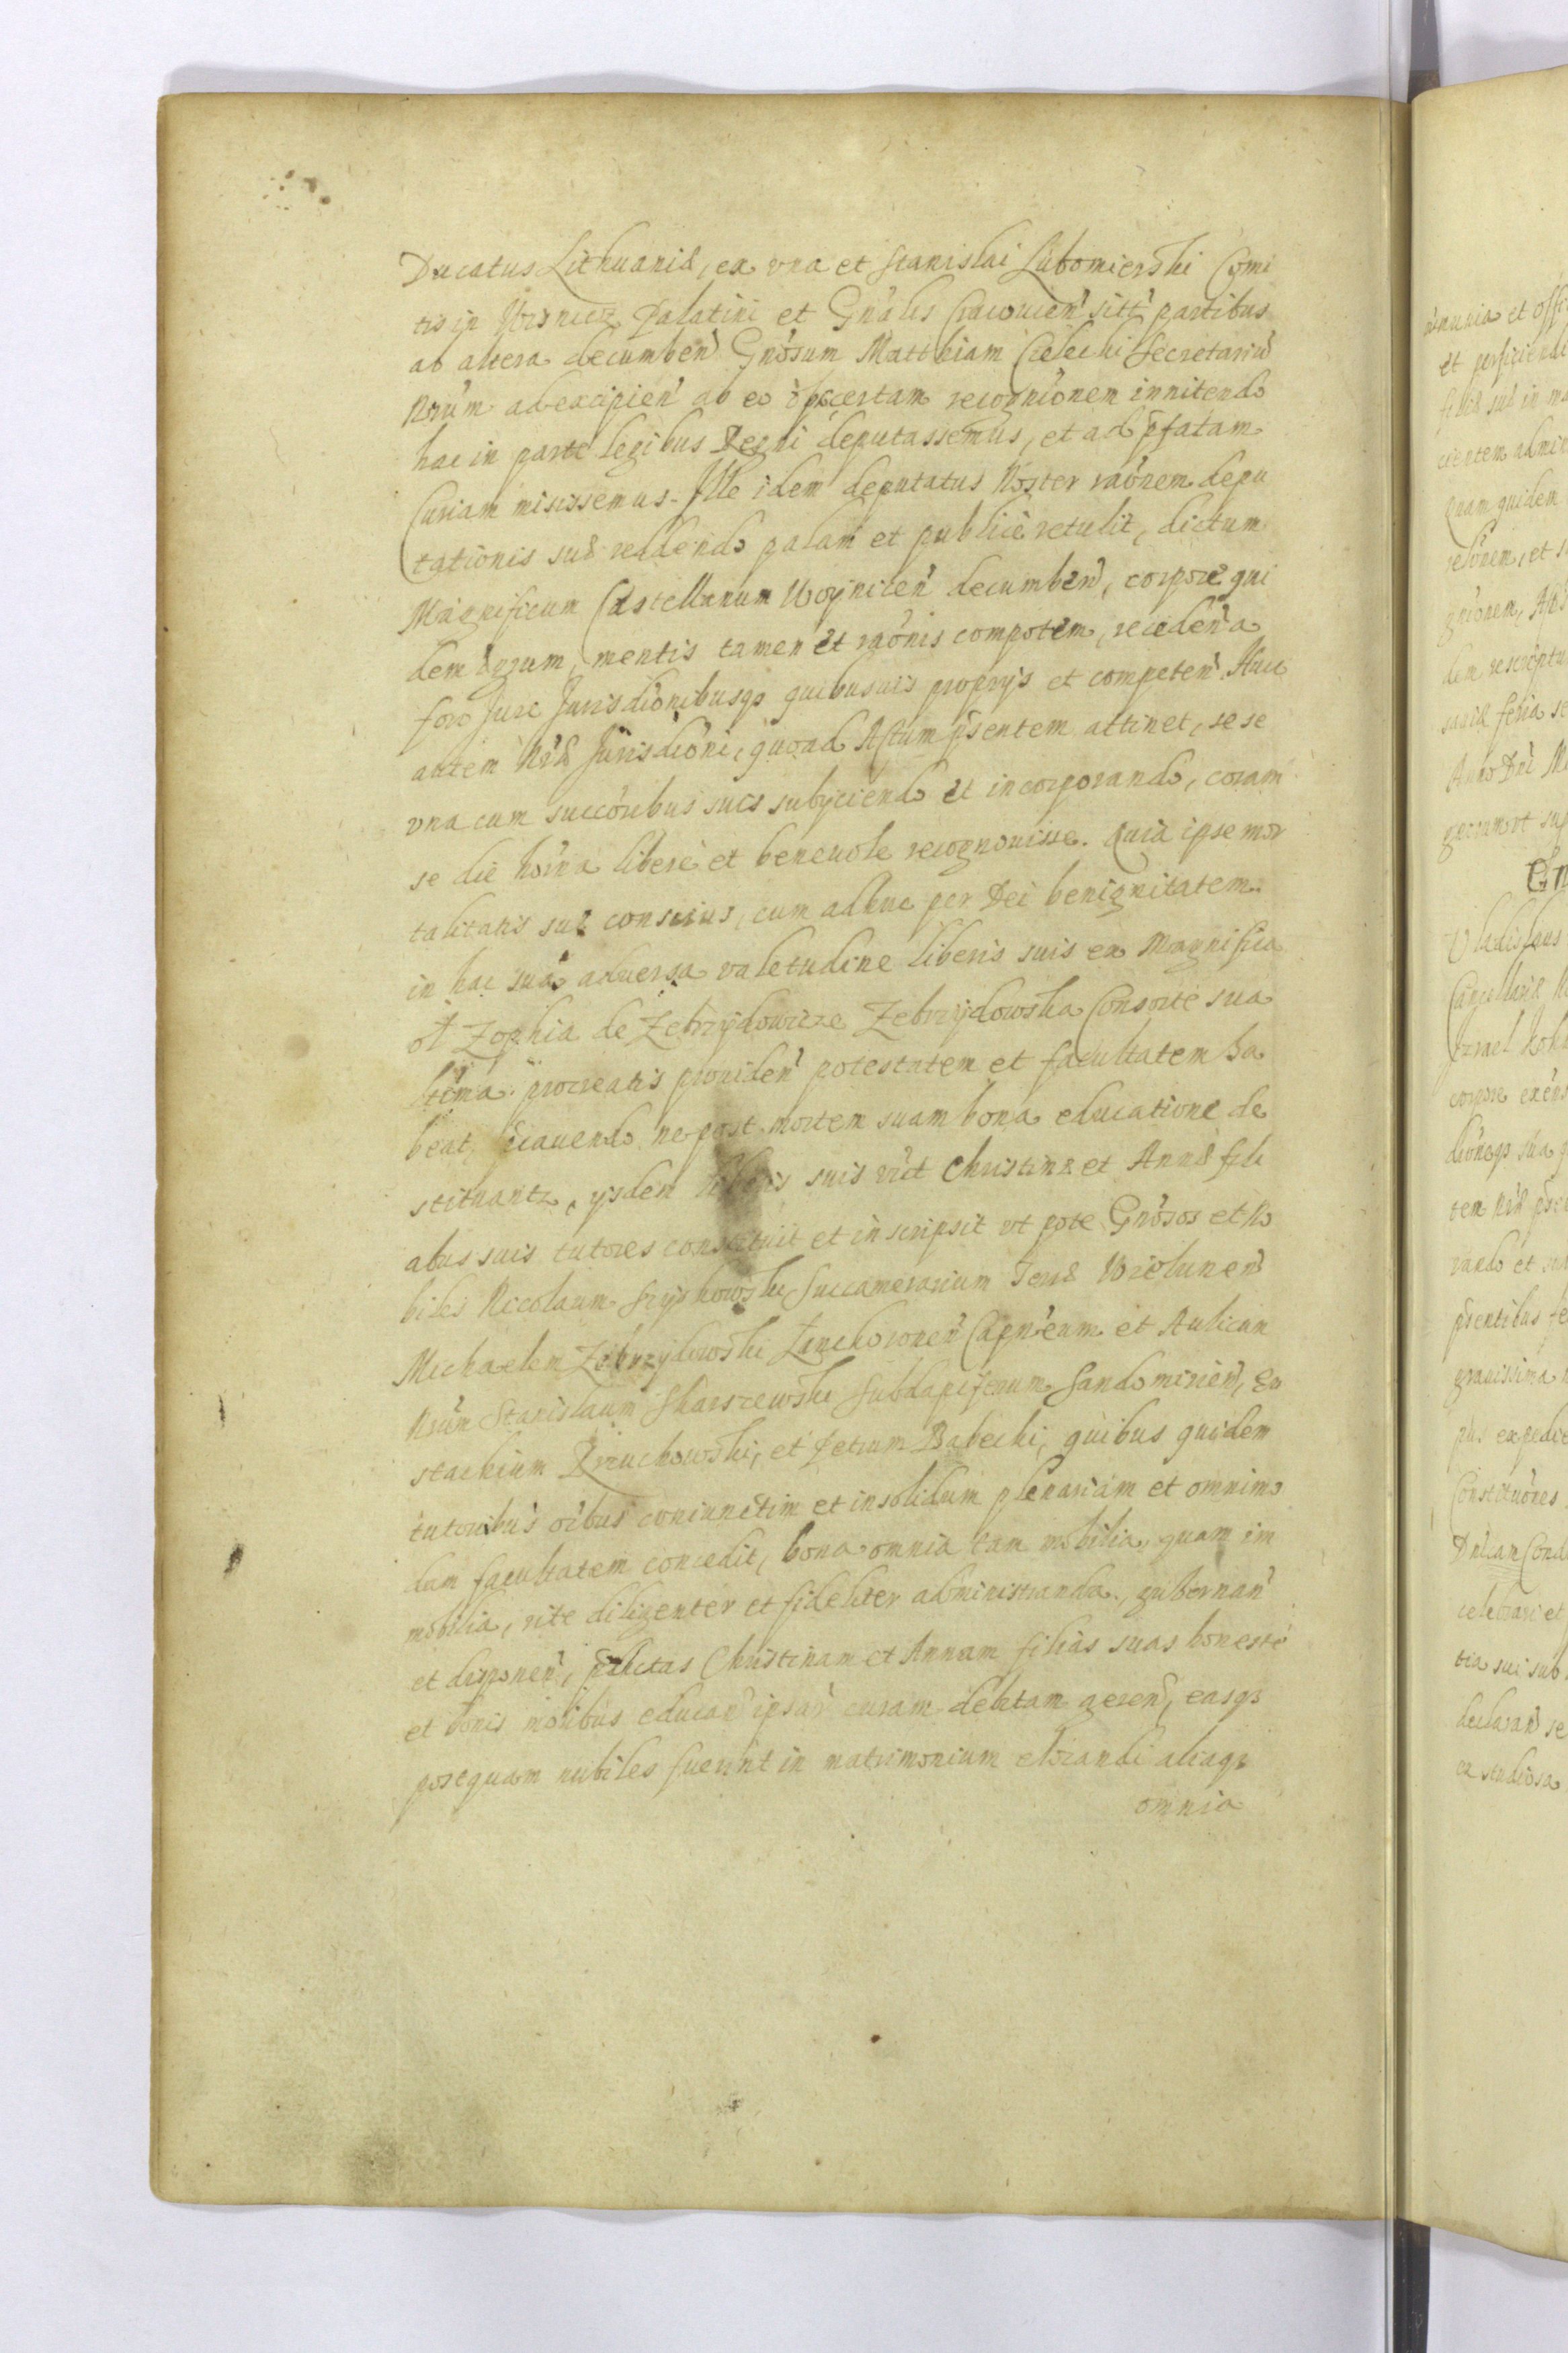 Ducatus Lithuaniæ, ex vna et Stanislai Lubomierski Comi
tis in Wisnicz Palatini et Gnälis Cracouien̄ sitt̄ partibus
ab altera decumben̄ Gnōsum Matthiam Cielecki Secretariū
Nrūm ad excipien̄ ab eo ip̄ certam recognīonem innitendo
hac in parte legibus Regni deputassemus, et ad p̄fatam
Curiam misissemus. Ille idem deputatus Noster raōnem depu
tationis suæ reddendo palam et publicè retulit, dictum
Magnificum Castellanum Woynicen̄ decumben̄, corpore qui
dem ægrum, mentis tamen et raōnis compotem, receden̄ a
foro Jure Jurisdīonibusq₃ quibusuis proprijs et competen̄ Huic
autem Nræ Jurisdīoni, quoad Actum p̄sentem attinet, se se
vna cum succōribus suis subijciendo et incorporando, coram
se die hōrna liberè et beneuole recognouisse. Quia ipse mor
talitatis suæ conscius, cum adhuc per Dei benignitatem
in hac sua aduersa valetudine liberis suis ex Magnifica
ol Zophia de Zebrzydowicze Zebrzydowska Consorte sua
ltīma procreatis prouiden̄ potestatem et facultatem ha
beat, cauendo ne post mortem suam bona educatione de
stituantr, ijsdem liberis suis vīct Christinæ et Annæ fili
abus suis tutores constituit et inscripsit vt pote Gnōsos et No
biles Nicolaum Szyszkowski Succamerarium Terræ Wielunen̄
Michaelem Zebrzydowski Lanckoronen̄ Capn̄eum et Aulicum
Nrūm Stanislaum Skarszewski Subdapiferum Sandomirien̄, Eu
stachium Rzuchowski, et Petrum Babecki, quibus quidem
tutoribus oībus coniunctim et insolidum plenariam et omnimo
dam facultatem concedit, bona omnia tam mobilia, quam im
mobilia, rite diligenter et fideliter administranda, gubernan̄
et disponen̄, p̄dictas Christinam et Annam filias suas honestè
et bonis moribus educan̄ ipsar̄ curam debitam geren̄, easq₃
postquam nubiles fuerint in matrimonium elocandi aliaq₃
omnia
et offi
et perficiendi
Quam quidem
Anno Dn̄i M
Vladislaus
Cancellariæ
Izrael
corpore
p̄sentibus
grauissima
expedi
Constitūones
celebrari et
tia sui sub
declaran̄ se
ex studiosa